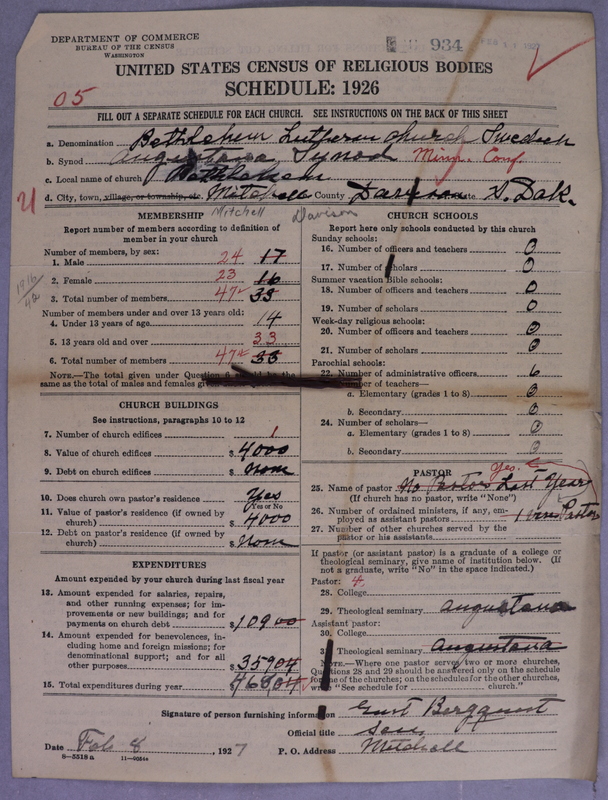 DEPARTMENT OF COMMERCE
BUREAU OF THE CENSUS
WASHINGTON
934
UNITED STATES CENSUS OF RELIGIOUS BODIES
SCHEDULE: 1926
05
FILL OUT A SEPARATE SCHEDULE FOR EACH CHURCH. SEE INSTRUCTIONS ON THE BACK OF THIS SHEET
a. Denomination Bethlehem Lutheran Church Swedish
b. Synod Augustana Synod Minn. Conf
c. Local name of church Bethlehem
d. City, town, village, or township, etc. Mitchell County Davison State S. Dak.
Mitchell Davison
MEMBERSHIP
Report number of members according to definition of
member in your church
Number of members, by sex:
1. Male 24 17
2. Female 23 16
3. Total number of members 47 33
1916/42
Number of members under and over 13 years old:
4. Under 13 years of age 14
5. 13 years old and over 33
6. Total number of members 47 33
NOTE.—The total given under Question 6 should be the
same as the total of males and females
CHURCH BUILDINGS
See instructions, paragraphs 10 to 12
7. Number of church edifices 1
8. Value of church edifices $ 4000
9. Debt on church edifices $ none
10. Does church own pastor's residence Yes
(Yes or No)
11. Value of pastor's residence (if owned by
church) $ 4000
12. Debt on pastor's residence (if owned by
church) $ none
EXPENDITURES
Amount expended by your church during last fiscal year
13. Amount expended for salaries, repairs,
and other running expenses; for im-
provements or new buildings; and for
payments on church debt $ 10900
14. Amount expended for benevolences, in-
cluding home and foreign missions; for
denominational support; and for all
other purposes $ 35904
15. Total expenditures during year $ 46804
CHURCH SCHOOLS
Report here only schools conducted by this church
Sunday schools:
16. Number of officers and teachers 0
17. Number of scholars 0
Summer vacation Bible schools:
18. Number of officers and teachers 0
19. Number of scholars 0
Week-day religious schools:
20. Number of officers and teachers 0
21. Number of scholars 0
Parochial schools:
22. Number of administrative officers 6
Number of teachers—
a. Elementary (grades 1 to 8) 0
b. Secondary 0
24. Number of scholars—
a. Elementary (grades 1 to 8) 0
b. Secondary 0
PASTOR Yes.
25. Name of pastor No Pastors Last Year
(If church has no pastor, write "None")
26. Number of ordained ministers, if any, em-
ployed as assistant pastors Pastor
27. Number of other churches served by the
pastor or his assistants
If pastor (or assistant pastor) is a graduate of a college or
theological seminary, give name of institution below. (If
not a graduate, write "No" in the space indicated.)
Pastor: 4
28. College
29. Theological seminary Augustana
Assistant pastor:
30. College
Theological seminary Augustana
NOTE.—Where one pastor served two or more churches,
Questions 28 and 29 should be answered only on the schedule
for one of the churches; on the schedules for the other churches,
write "See schedule for church."
Signature of person furnishing information Gust Bergquist
Official title Sec.
Date Feb 8, 1927 P. O. Address Mitchell
8—5518a 11—9054